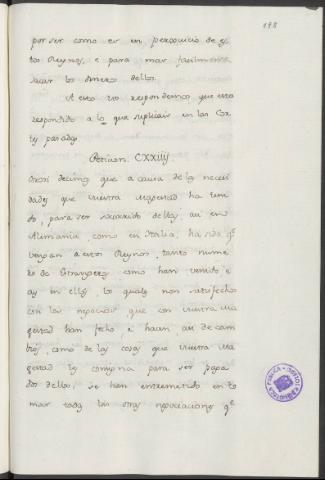 198
por ser como es en perjuicio de es
tos Reynos, e para mas facilmente
sacar los dineros dellos.
A esto vos respondemos que esta
respondido a lo que suplicais en las Cor
tes pasadas.
Peticion. CXXIIIJ.
Otrosi decimos que a causa de las necesi
dades que vuestra Magestad ha teni
do, para ser socorrido dellas, asi en
Alemania, como en Italia, ha sido qe
vengan a estos Reynos, tanto nume
ro de Estrangeros como han venido e
ay en ellos, los quales non satisfechos
con los negocios, que con vuestra Ma
gestad han fecho, e hacen, asi de cam
bios, como de las cosas que vuestra Ma
gestad les consigna para ser paga
dos dellos, se han entremetido en to
mar todas las otras negociaciones qe